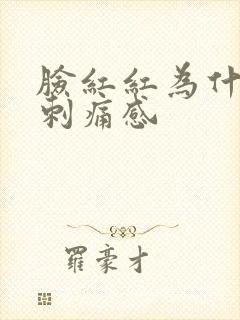 臉紅紅為什
刺痛感
羅豪才